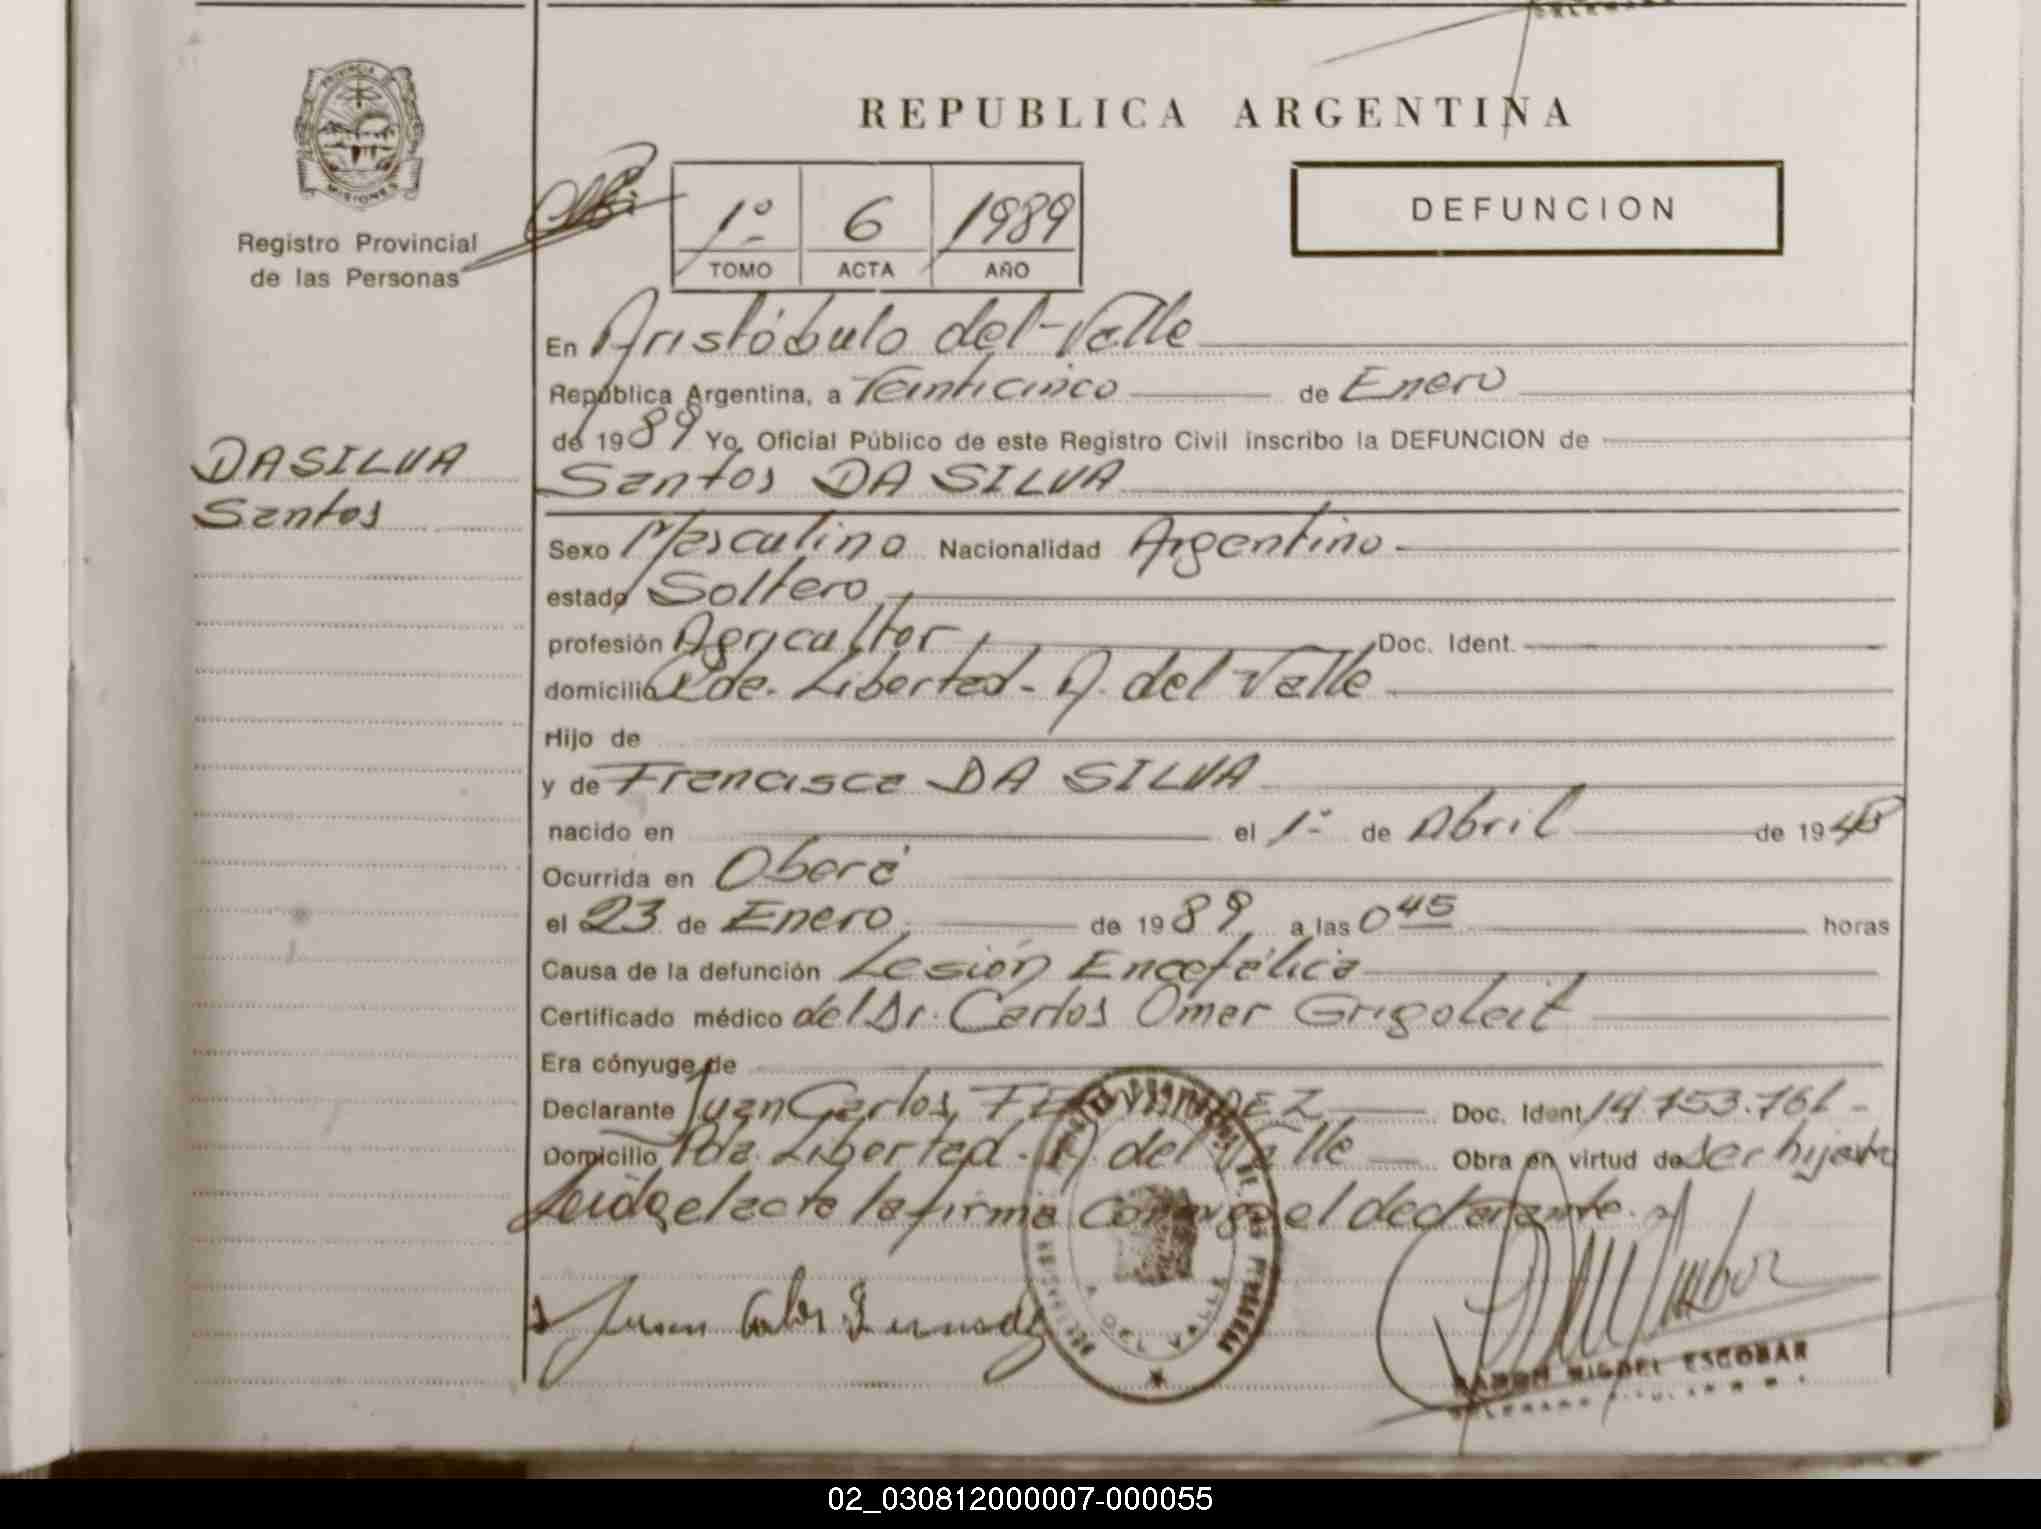 REPUBLICA ARGENTINA
PROVINCIA
MISIONES
Registro Provincial
de las Personas
1º 6 1989
TOMO ACTA AÑO
DEFUNCION
En Aristóbulo del Valle
República Argentina, a Veinticinco de Enero
de 1989 Yo, Oficial Público de este Registro Civil inscribo la DEFUNCION de
DA SILVA
Santos
Santos DA SILVA
Sexo Masculino Nacionalidad Argentino
estado Soltero
profesión Agricultor Doc. Ident.
domicilio Pde. Libertad - A. del Valle
Hijo de
y de Francisca DA SILVA
nacido en el 1º de Abril de 1948
Ocurrida en Oberá
el 23 de Enero de 1989 a las 0 45 horas
Causa de la defunción Lesión Encefálica
Certificado médico del Dr. Carlos Omar Grigoleit
Era cónyuge de
Declarante Juan Carlos FERNANDEZ Doc. Ident. 14.753.761-
Domicilio Pda. Libertad - A. del Valle Obra en virtud de ser hijastro
Leida el acta la firma conmigo el declarante.
Juan Carlos Fernandez
A. DEL VALLE
RAMON MIGUEL ESCOBAR
02_030812000007-000055